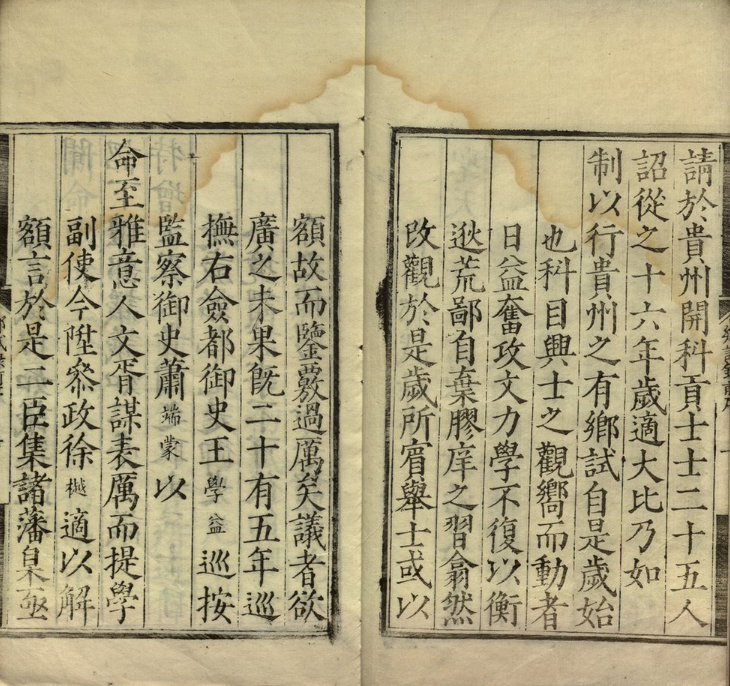 請於貴州開科貢士士二十五人
詔從之十六年歲適大比乃如
制以行貴州之有鄉試自是歲始
也科目興士之觀嚮而動者
日益奮攻文力學不復以衡
逖荒鄙自棄膠庠之習翕然
改觀於是歲所賓舉士或以
額故而鑒覈過厲矣議者欲
廣之未果旣二十有五年巡
撫右僉都御史王學益巡按
監察御史蕭端蒙以
命至雅意人文胥謀表厲而提學
副使今陞叅政徐樾適以解
額言於是二臣集諸藩臬亟